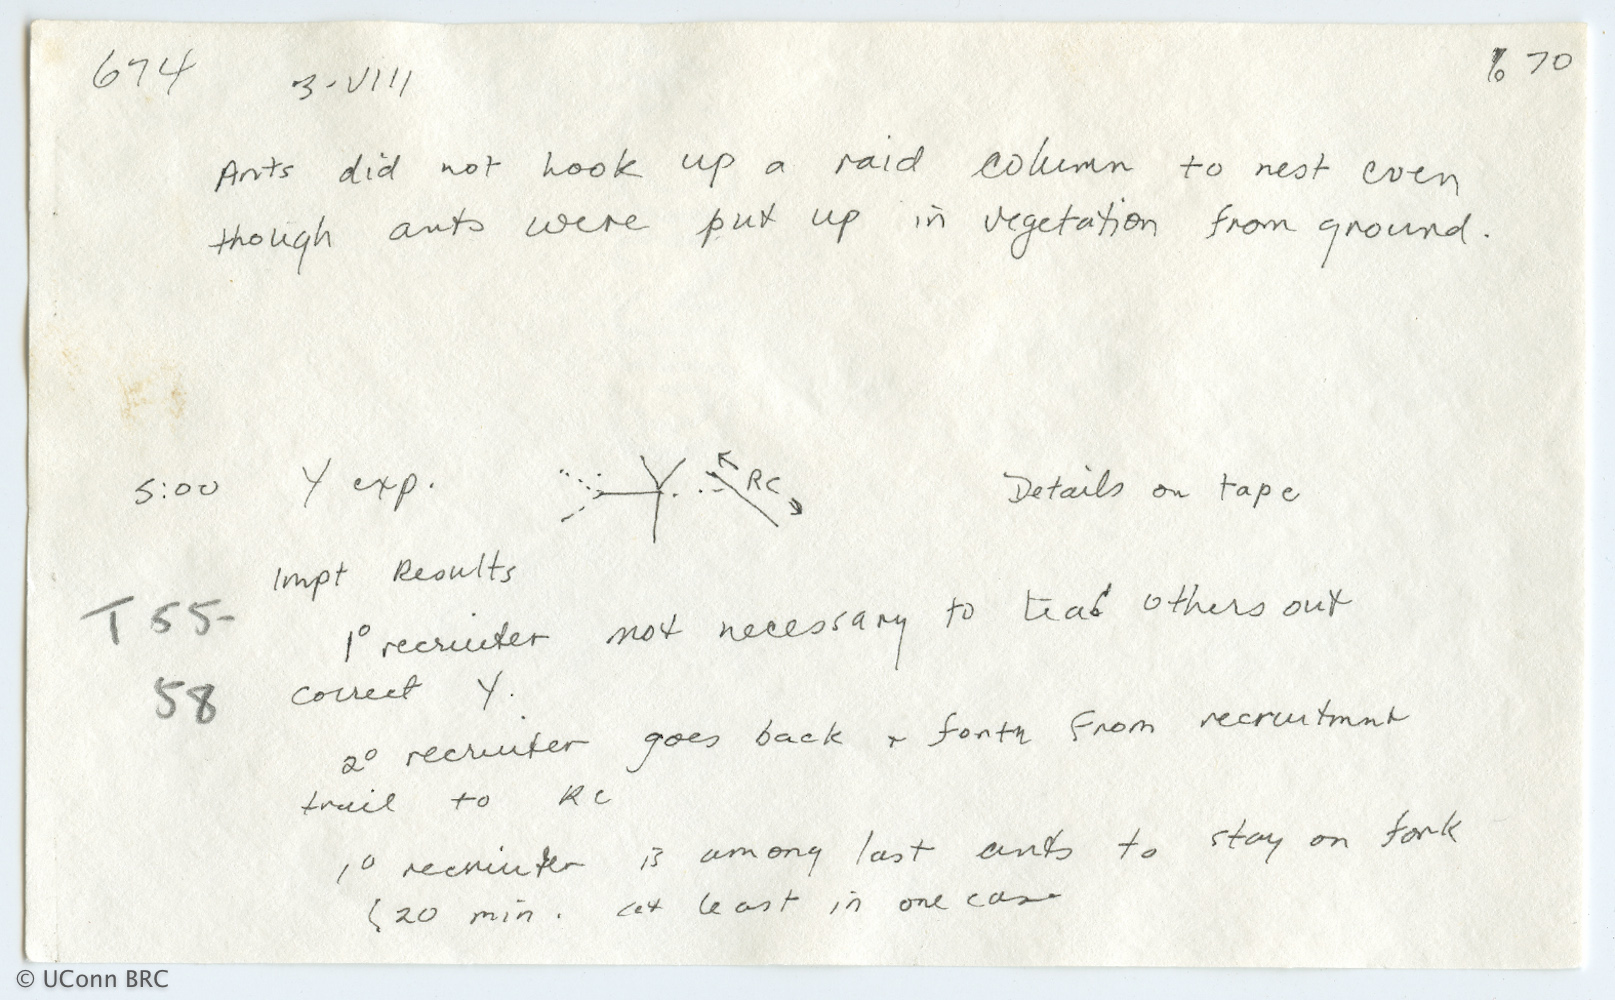 674 3-VIII 70
Ants did not hook up a raid column to nest even
though ants were put up in vegetation from ground.
5:00 Y exp. RC Details on tape
Impt Results
T 55-
1° recruiter not necessary to lead others out
58 correct Y.
2° recruiter goes back + forth from recruitmnt
trail to RC
1° recruiter is among last ants to stay on fork
20 min. at least in one case
© UConn BRC